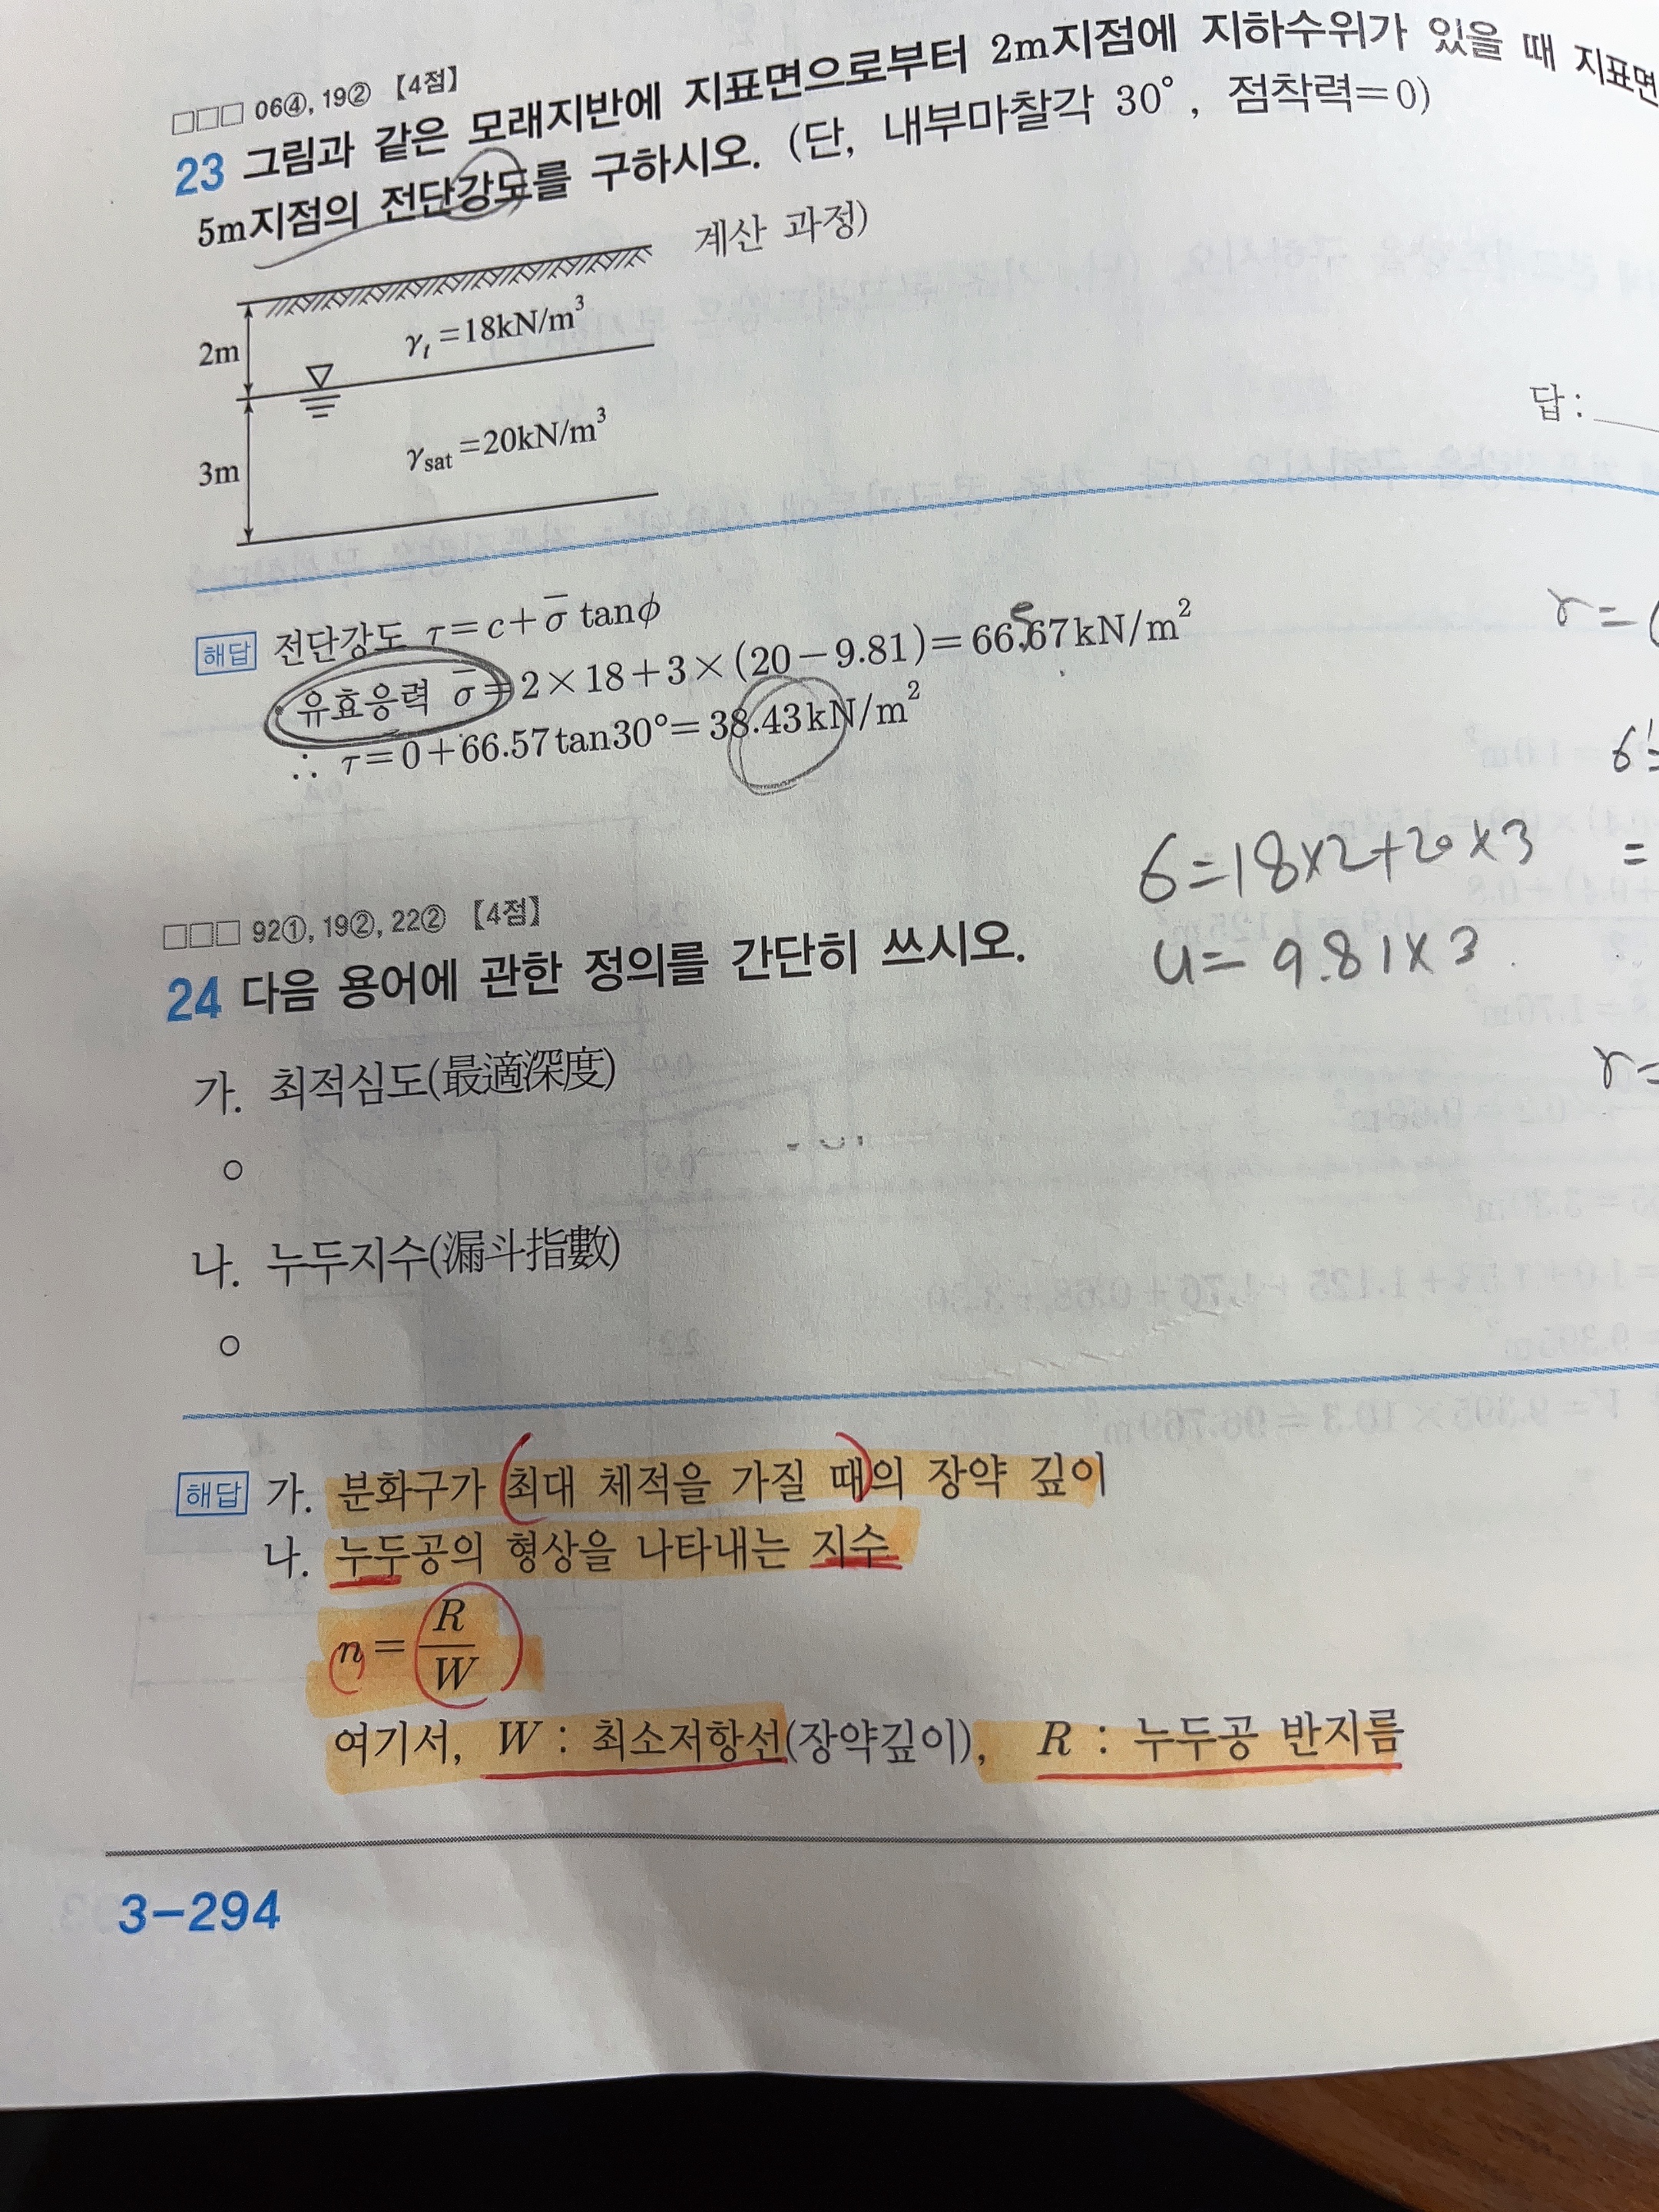 □□□ 06④, 19② 【4점】
23 그림과 같은 모래지반에 지표면으로부터 2m지점에 지하수위가 있을 때 지표면
5m지점의 전단강도를 구하시오. (단, 내부마찰각 30°, 점착력=0)
계산 과정)
2m
γt=18kN/m³
3m
γsat=20kN/m³
답 :
해답 전단강도 τ=c+σ̄ tanφ
유효응력 σ̄=2×18+3×(20−9.81)=66.67kN/m²
5
∴ τ=0+66.57tan30°=38.43kN/m²
r=(
6'=
6=18×2+20×3
=
u=9.81×3
r=
□□□ 92①, 19②, 22② 【4점】
24 다음 용어에 관한 정의를 간단히 쓰시오.
가. 최적심도(最適深度)
○
나. 누두지수(漏斗指數)
○
해답 가. 분화구가 최대 체적을 가질 때의 장약 깊이
나. 누두공의 형상을 나타내는 지수
n=R/W
여기서, W : 최소저항선(장약깊이), R : 누두공 반지름
3-294